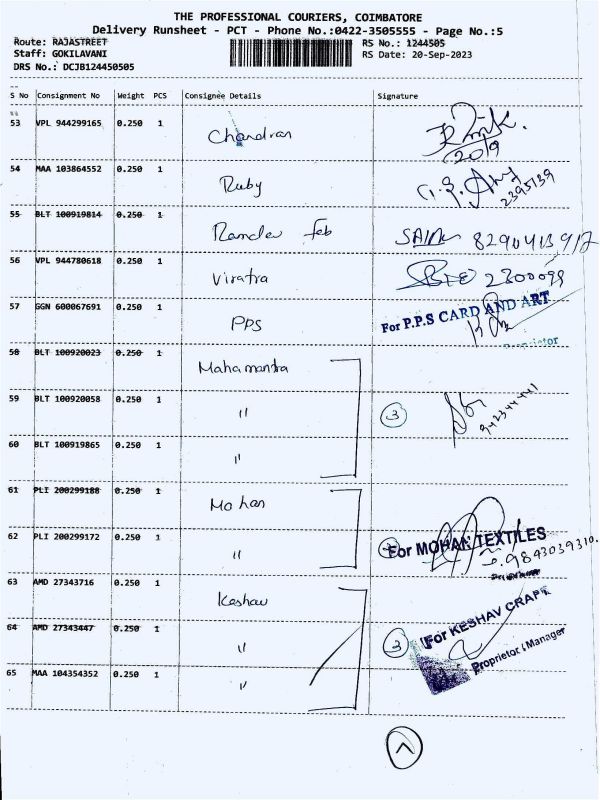 THE PROFESSIONAL COURIERS, COIMBATORE
Delivery Runsheet - PCT - Phone No.:0422-3505555 - Page No.:5
Route: RAJASTREET RS No.: 1244505
Staff: GOKILAVANI RS Date: 20-Sep-2023
DRS No.: DCJB124450505
S No Consignment No Weight PCS Consignee Details Signature
53 VPL 944299165 0.250 1 Chandran
20/9
54 MAA 103864552 0.250 1 Ruby
2395139
55 BLT 100919814 0.250 1 Ramdev Feb
56 VPL 944780618 0.250 1 Viratra 2300099
57 GGN 600067691 0.250 1 PPS For P.P.S CARD AND ART
58 BLT 100920023 0.250 1 Mahamantra
59 BLT 100920058 0.250 1 " 3
60 BLT 100919865 0.250 1 "
61 PLI 200299188 0.250 1 Mohan
62 PLI 200299172 0.250 1 " For MOHAN TEXTILES
9843039310.
63 AMD 27343716 0.250 1 Keshav
64 AMD 27343447 0.250 1 " 3 For KESHAV CRAFT
Proprietor / Manager
65 MAA 104354352 0.250 1 "